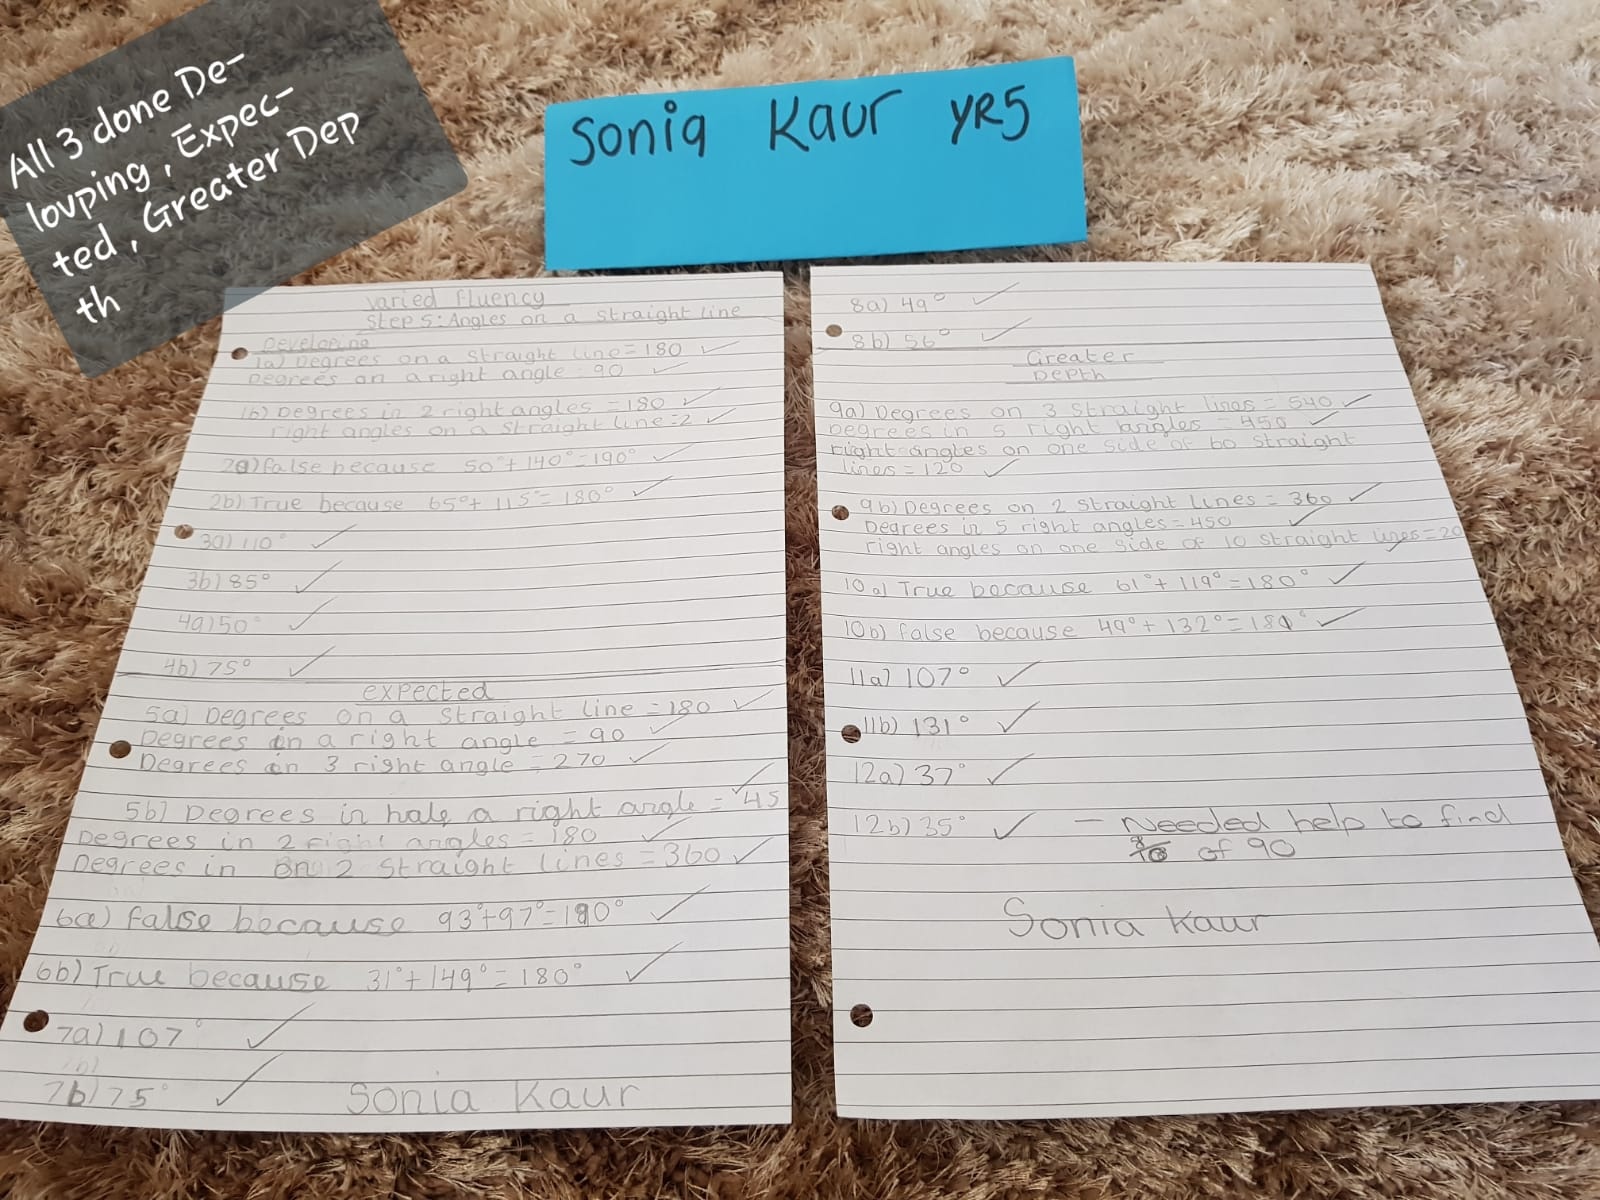 All 3 done De-
lovping, Expec-
ted, Greater Dep
th
Sonia Kaur YR5
varied fluency
Step 5: Angles on a straight line
Developing
1a) Degrees on a straight line = 180
Degrees on a right angle = 90
1b) Degrees in 2 right angles = 180
right angles on a straight line = 2
2a) false because 50° + 140° = 190°
2b) True because 65° + 115° = 180°
3a) 110°
3b) 85°
4a) 50°
4b) 75°
expected
5a) Degrees on a straight line = 180
Degrees in a right angle = 90
Degrees in 3 right angle = 270
5b) Degrees in half a right angle = 45
Degrees in 2 right angles = 180
Degrees in on 2 straight lines = 360
6a) false because 93° + 97° = 190°
6b) True because 31° + 149° = 180°
7a) 107°
7b) 75°
Sonia Kaur
8a) 49°
8b) 56°
Greater
Depth
9a) Degrees on 3 straight lines = 540
Degrees in 5 right angles = 450
right angles on one side of 60 straight
lines = 120
9b) Degrees on 2 straight lines = 360
Degrees in 5 right angles = 450
right angles on one side of 10 straight lines = 20
10a) True because 61° + 119° = 180°
10b) false because 49° + 132° = 181°
11a) 107°
11b) 131°
12a) 37°
12b) 35° - Needed help to find
of 90
Sonia Kaur